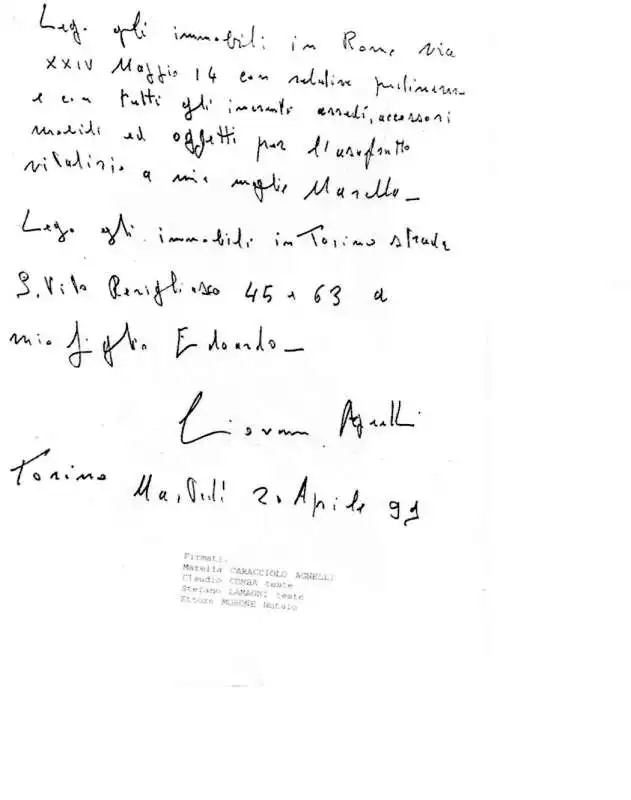 Lego gli immobili in Roma via
XXIV Maggio 14 con relative pertinenze
e con tutti gli inerenti arredi, accessori
mobili ed oggetti per l'usufrutto
vitalizio a mia moglie Marella_
Lego gli immobili in Torino strada
S. Vito Revigliasco 45 e 63 a
mio figlio Edoardo_
Giovanni Agnelli
Torino Martedì 20 Aprile 99
Firmati.
Marella CARACCIOLO AGNELLI
Claudio COMBA teste
Stefano teste
Ettore MORONE Notaio